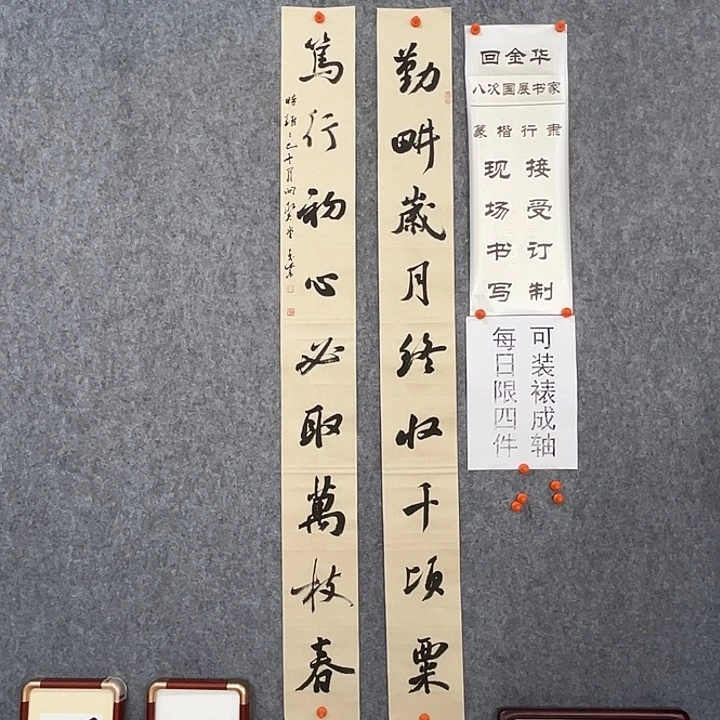 勤畊岁月终收千顷粟
笃行初心必取萬枝春
回金华
八次国展书家
篆楷行隶
接受订制
现场书写
可装裱成轴
每日限四件